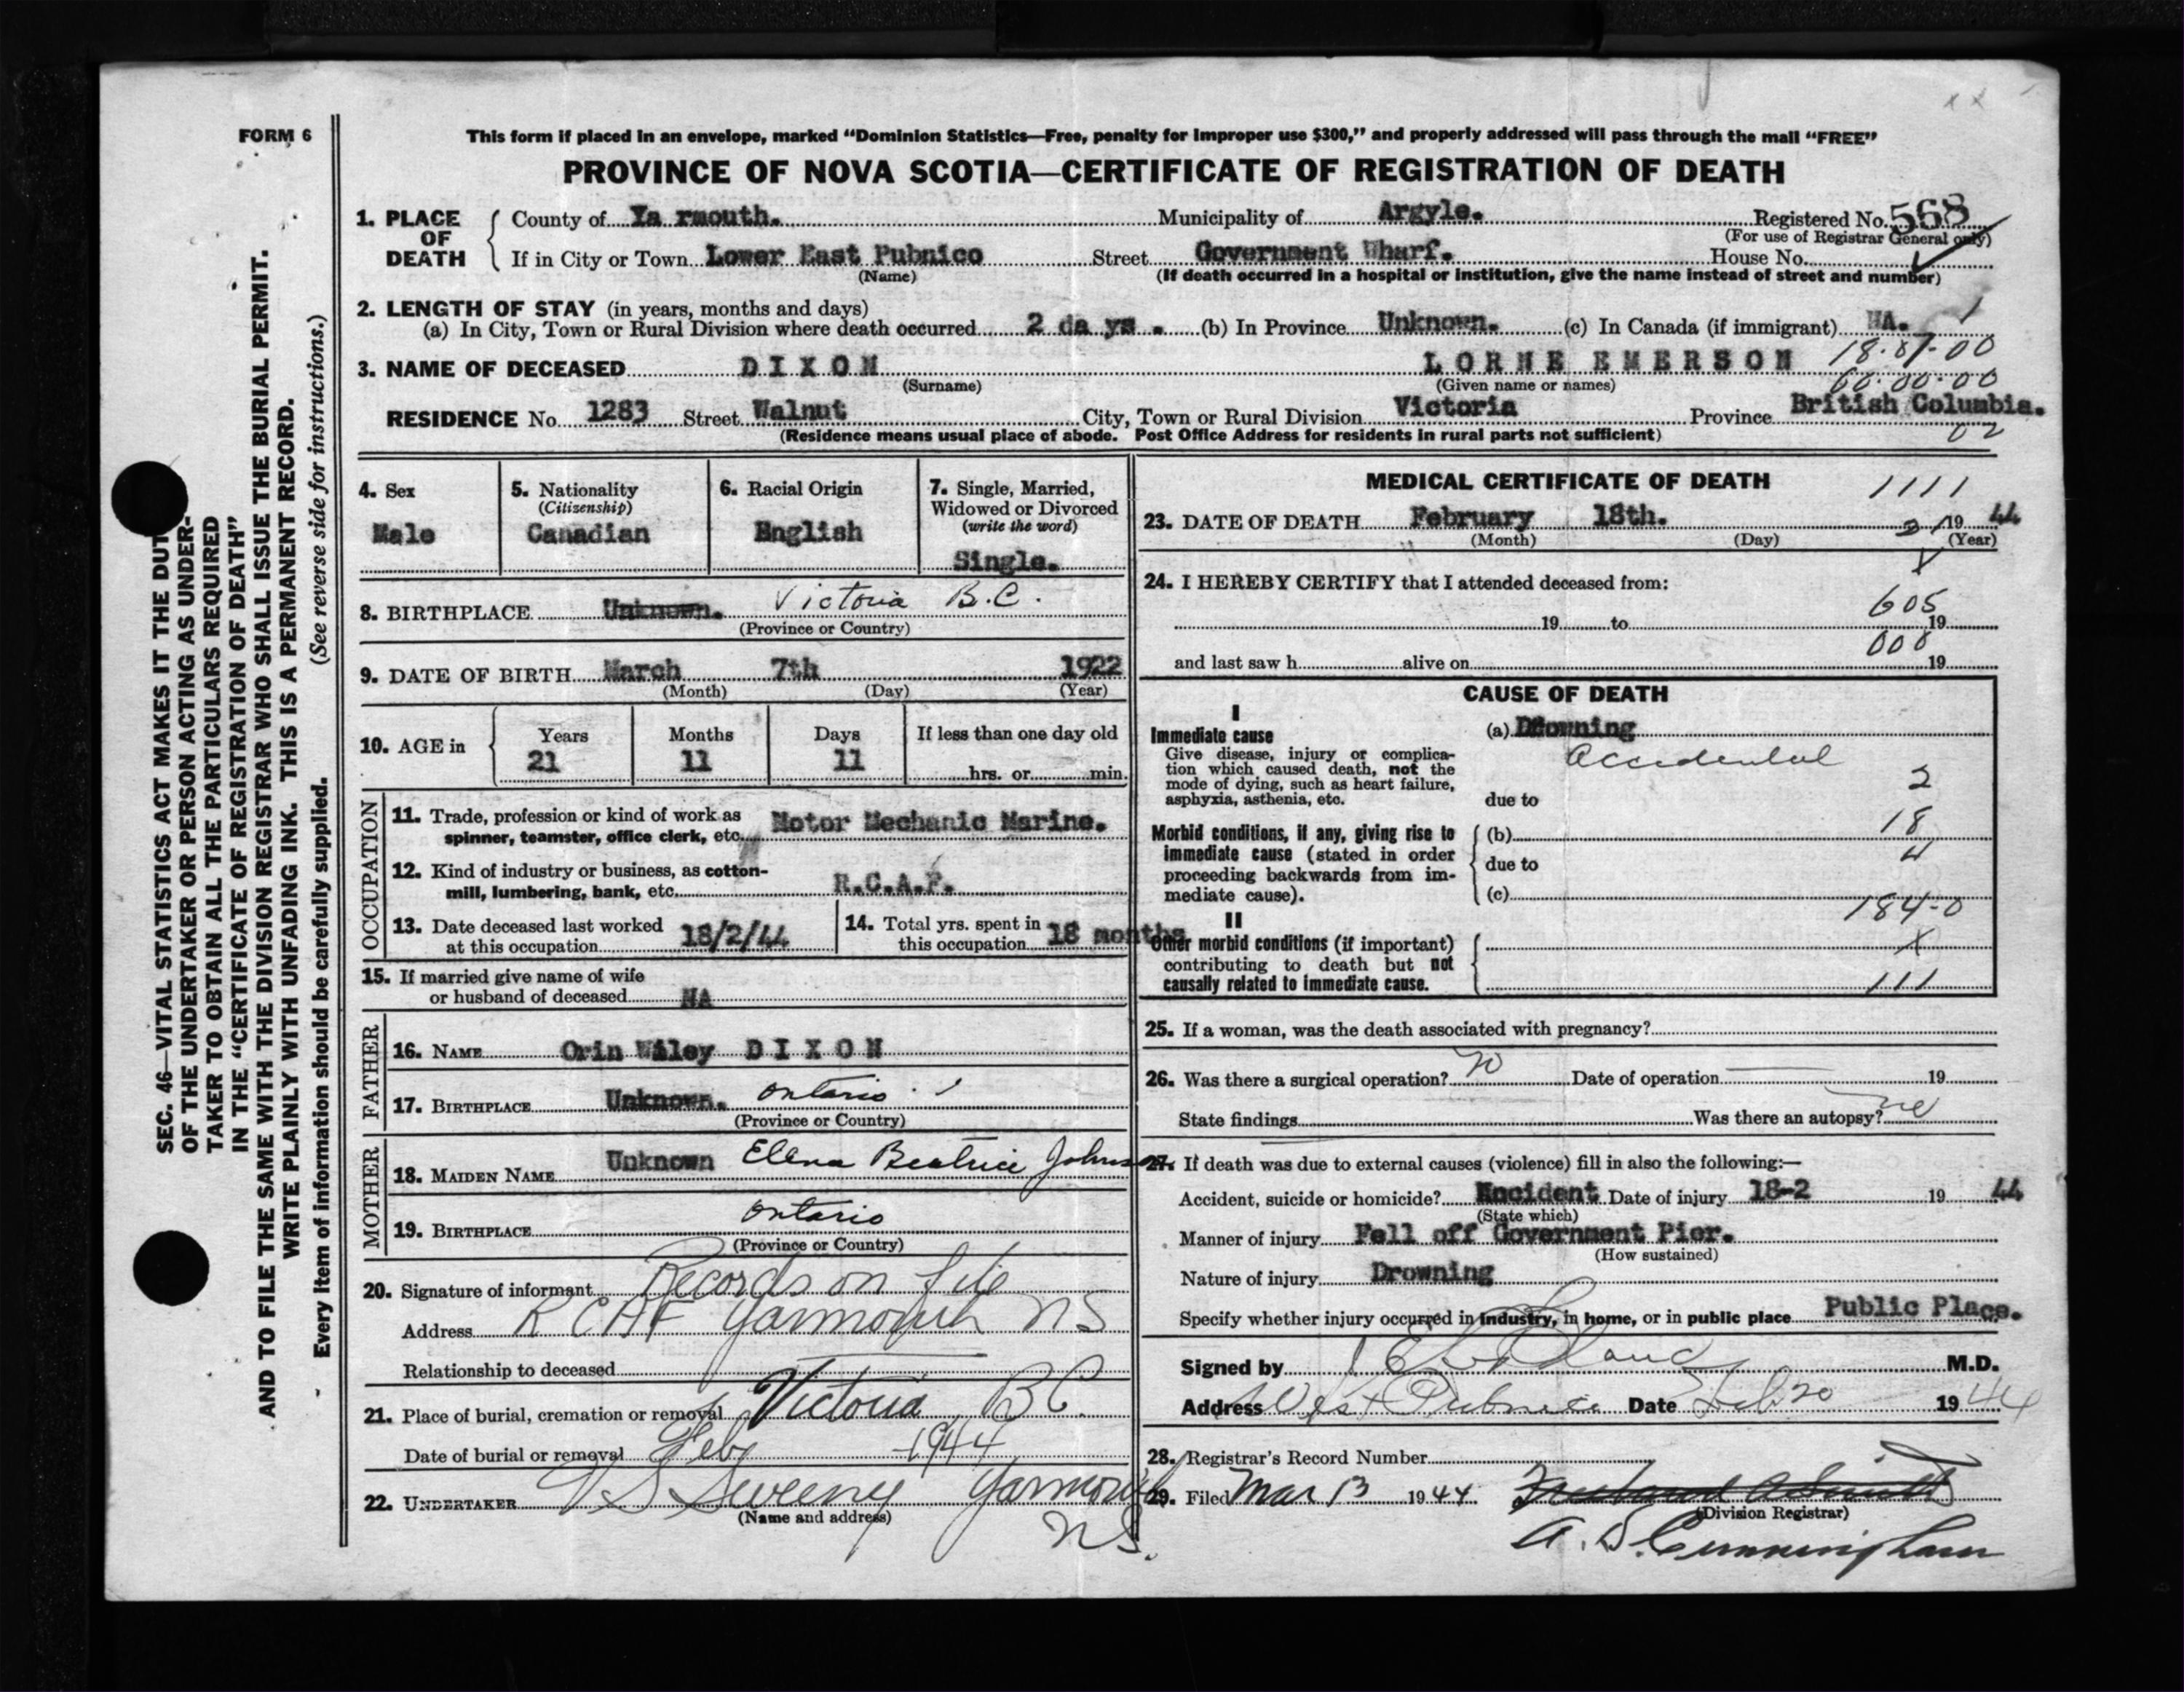 FORM 6
This form if placed in an envelope, marked “Dominion Statistics—Free, penalty for improper use $300,” and properly addressed will pass through the mail “FREE”
PROVINCE OF NOVA SCOTIA—CERTIFICATE OF REGISTRATION OF DEATH
1. PLACE OF DEATH
County of Ya rmouth. Municipality of Argyle. Registered No. 568
(For use of Registrar General only)
If in City or Town Lower East Pubnico Street Government Wharf. House No.
(Name) (If death occurred in a hospital or institution, give the name instead of street and number)
2. LENGTH OF STAY (in years, months and days)
(a) In City, Town or Rural Division where death occurred 2 da ys . (b) In Province Unknown. (c) In Canada (if immigrant) NA. 1
3. NAME OF DECEASED DIXON LORNE EMERSON 18.07-00
(Surname) (Given name or names) 60.00.00
RESIDENCE No. 1283 Street Walnut City, Town or Rural Division Victoria Province British Columbia.
(Residence means usual place of abode. Post Office Address for residents in rural parts not sufficient) 02
4. Sex
Male
5. Nationality
(Citizenship)
Canadian
6. Racial Origin
English
7. Single, Married,
Widowed or Divorced
(write the word)
Single.
8. BIRTHPLACE Unknown. Victoria B.C.
(Province or Country)
9. DATE OF BIRTH March 7th 1922
(Month) (Day) (Year)
10. AGE in
Years Months Days If less than one day old
21 11 11 hrs. or min.
OCCUPATION
11. Trade, profession or kind of work as
spinner, teamster, office clerk, etc. Motor Mechanic Marine.
12. Kind of industry or business, as cotton-
mill, lumbering, bank, etc. R.C.A.F.
13. Date deceased last worked
at this occupation 18/2/44
14. Total yrs. spent in
this occupation 18 months
15. If married give name of wife
or husband of deceased NA
FATHER
16. NAME Orin Wiley DIXON
17. BIRTHPLACE Unknown. Ontario
(Province or Country)
MOTHER
18. MAIDEN NAME Unknown Elena Beatrice Johnson
19. BIRTHPLACE Ontario
(Province or Country)
20. Signature of informant Records on file
Address RCAF Yarmouth NS
Relationship to deceased
21. Place of burial, cremation or removal Victoria BC.
Date of burial or removal Feb 1944
22. UNDERTAKER V S Sweeny Yarmouth
(Name and address) NS.
MEDICAL CERTIFICATE OF DEATH 1111
23. DATE OF DEATH February 18th. 2 19 44
(Month) (Day) (Year)
24. I HEREBY CERTIFY that I attended deceased from:
605
19 to 19
000
and last saw h alive on 19
CAUSE OF DEATH
I
Immediate cause
Give disease, injury or complica-
tion which caused death, not the
mode of dying, such as heart failure,
asphyxia, asthenia, etc.
(a) Drowning
Accidental
2
due to
18
Morbid conditions, if any, giving rise to
immediate cause (stated in order
proceeding backwards from im-
mediate cause).
(b)
4
due to
(c)
184-0
II
Other morbid conditions (if important)
contributing to death but not
causally related to immediate cause.
X
111
25. If a woman, was the death associated with pregnancy?
26. Was there a surgical operation? no Date of operation 19
State findings Was there an autopsy? no
27. If death was due to external causes (violence) fill in also the following:—
Accident, suicide or homicide? Accident Date of injury 18-2 19 44
(State which)
Manner of injury Fell off Government Pier.
(How sustained)
Nature of injury Drowning
Specify whether injury occurred in industry, in home, or in public place Public Place.
Signed by M.D.
Address West Pubnico Date Feb 20 1944
28. Registrar's Record Number
29. Filed Mar 13 1944
(Division Registrar)
A. D. Cunningham
SEC. 46—VITAL STATISTICS ACT MAKES IT THE DUT
OF THE UNDERTAKER OR PERSON ACTING AS UNDER-
TAKER TO OBTAIN ALL THE PARTICULARS REQUIRED
IN THE “CERTIFICATE OF REGISTRATION OF DEATH”
AND TO FILE THE SAME WITH THE DIVISION REGISTRAR WHO SHALL ISSUE THE BURIAL PERMIT.
WRITE PLAINLY WITH UNFADING INK. THIS IS A PERMANENT RECORD.
Every item of information should be carefully supplied. (See reverse side for instructions.)